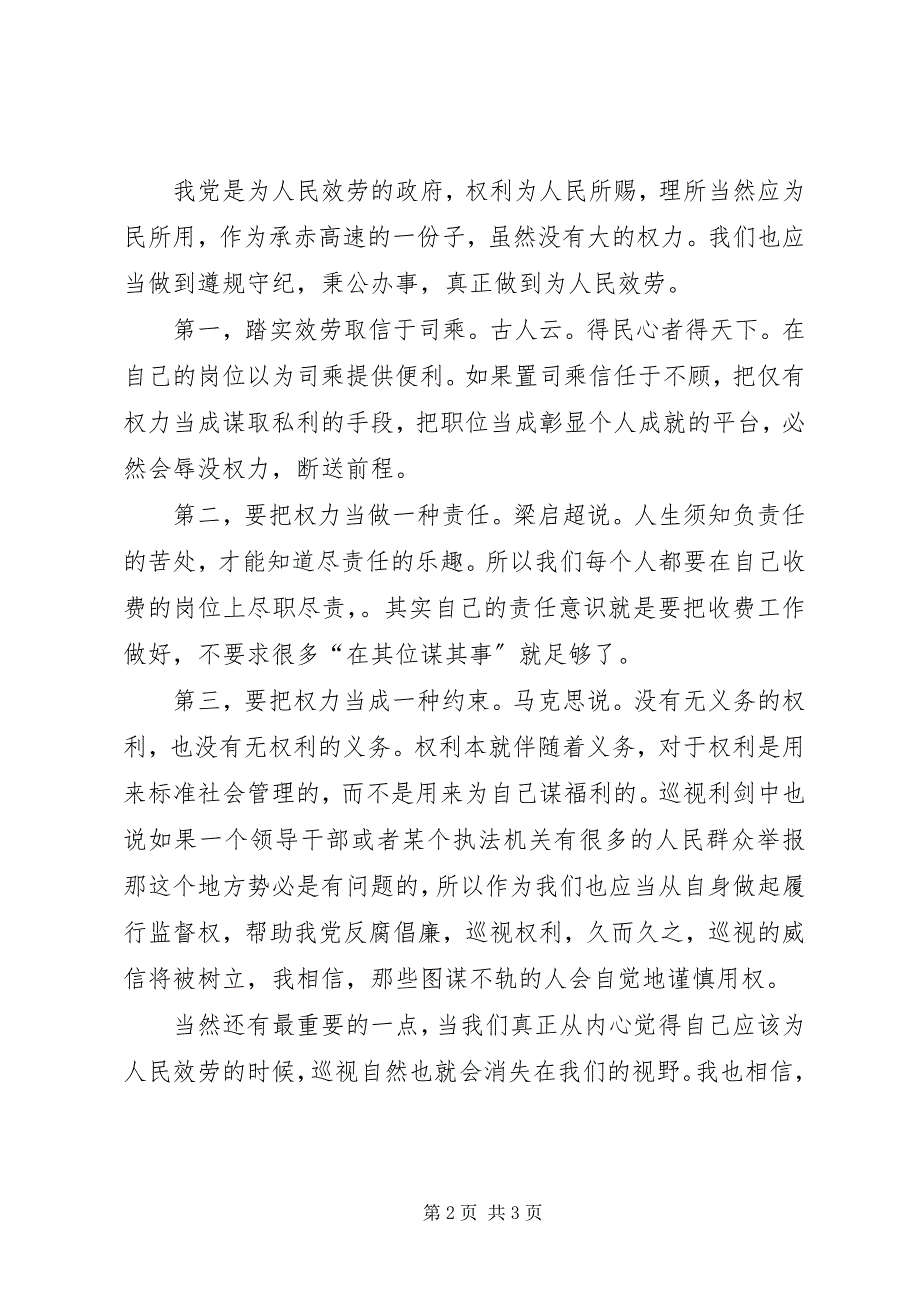 我党是为人民效劳的政府，权利为人民所赐，理所当然应为
民所用，作为承赤高速的一份子，虽然没有大的权力。我们也应
当做到遵规守纪，秉公办事，真正做到为人民效劳。
第一，踏实效劳取信于司乘。古人云。得民心者得天下。在
自己的岗位以为司乘提供便利。如果置司乘信任于不顾，把仅有
权力当成谋取私利的手段，把职位当成彰显个人成就的平台，必
然会辱没权力，断送前程。
第二，要把权力当做一种责任。梁启超说。人生须知负责任
的苦处，才能知道尽责任的乐趣。所以我们每个人都要在自己收
费的岗位上尽职尽责，。其实自己的责任意识就是要把收费工作
做好，不要求很多“在其位谋其事〞就足够了。
第三，要把权力当成一种约束。马克思说。没有无义务的权
利，也没有无权利的义务。权利本就伴随着义务，对于权利是用
来标准社会管理的，而不是用来为自己谋福利的。巡视利剑中也
说如果一个领导干部或者某个执法机关有很多的人民群众举报
那这个地方势必是有问题的，所以作为我们也应当从自身做起履
行监督权，帮助我党反腐倡廉，巡视权利，久而久之，巡视的威
信将被树立，我相信，那些图谋不轨的人会自觉地谨慎用权。
当然还有最重要的一点，当我们真正从内心觉得自己应该为
人民效劳的时候，巡视自然也就会消失在我们的视野。我也相信，
第 2 页 共 3 页